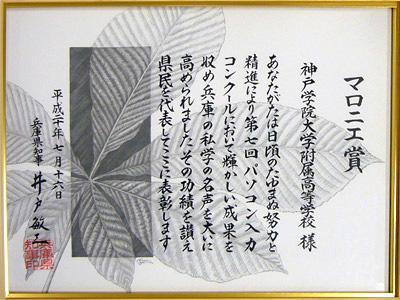 マロニエ賞
神戸学院大学附属高等学校 様
あなたがたは日頃のたゆまぬ努力と
精進により第七回パソコン入力
コンクールにおいて輝かしい成果を
収め兵庫の私学の名声を大いに
高められましたその功績を讃え
県民を代表してここに表彰します
平成二十年 七月十六日
兵庫県知事 井戸敏三
兵庫県
知事印